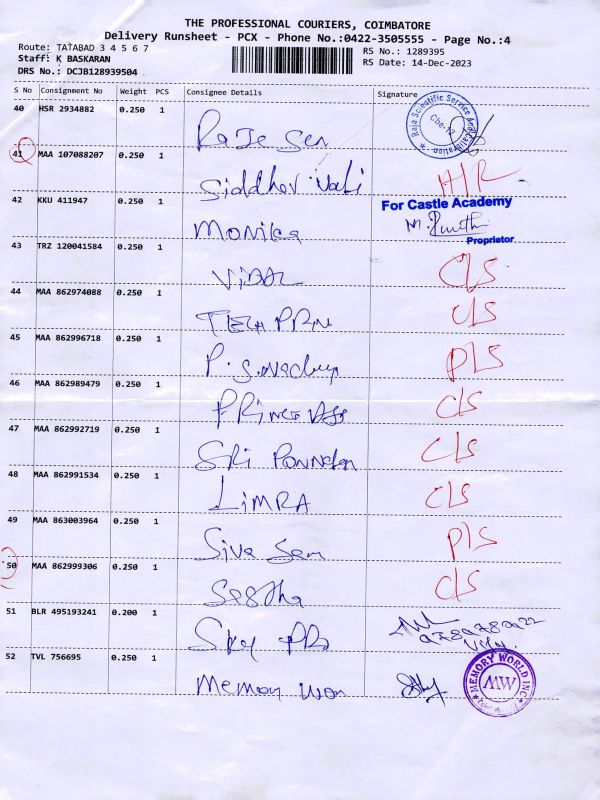 THE PROFESSIONAL COURIERS, COIMBATORE
Delivery Runsheet - PCX - Phone No.:0422-3505555 - Page No.:4
Route: TATABAD 3 4 5 6 7
RS No.: 1289395
Staff: K BASKARAN
RS Date: 14-Dec-2023
DRS No.: DCJB128939504
S No Consignment No Weight PCS Consignee Details Signature
40 HSR 2934882 0.250 1
Raja Scientific Service And Calibration
Cbe-12
41 MAA 107088207 0.250 1 Siddhev H/R
42 KKU 411947 0.250 1 Monika
For Castle Academy
Proprietor
43 TRZ 120041584 0.250 1 C/S
44 MAA 862974088 0.250 1 TECH C/S
45 MAA 862996718 0.250 1 P. P/S
46 MAA 862989479 0.250 1 PRINCE C/S
47 MAA 862992719 0.250 1 SRi C/S
48 MAA 862991534 0.250 1 LiMRA C/S
49 MAA 863003964 0.250 1 Siva P/S
50 MAA 862999306 0.250 1 C/S
51 BLR 495193241 0.200 1 Sky
52 TVL 756695 0.250 1
MEMORY WORLD INC
MW